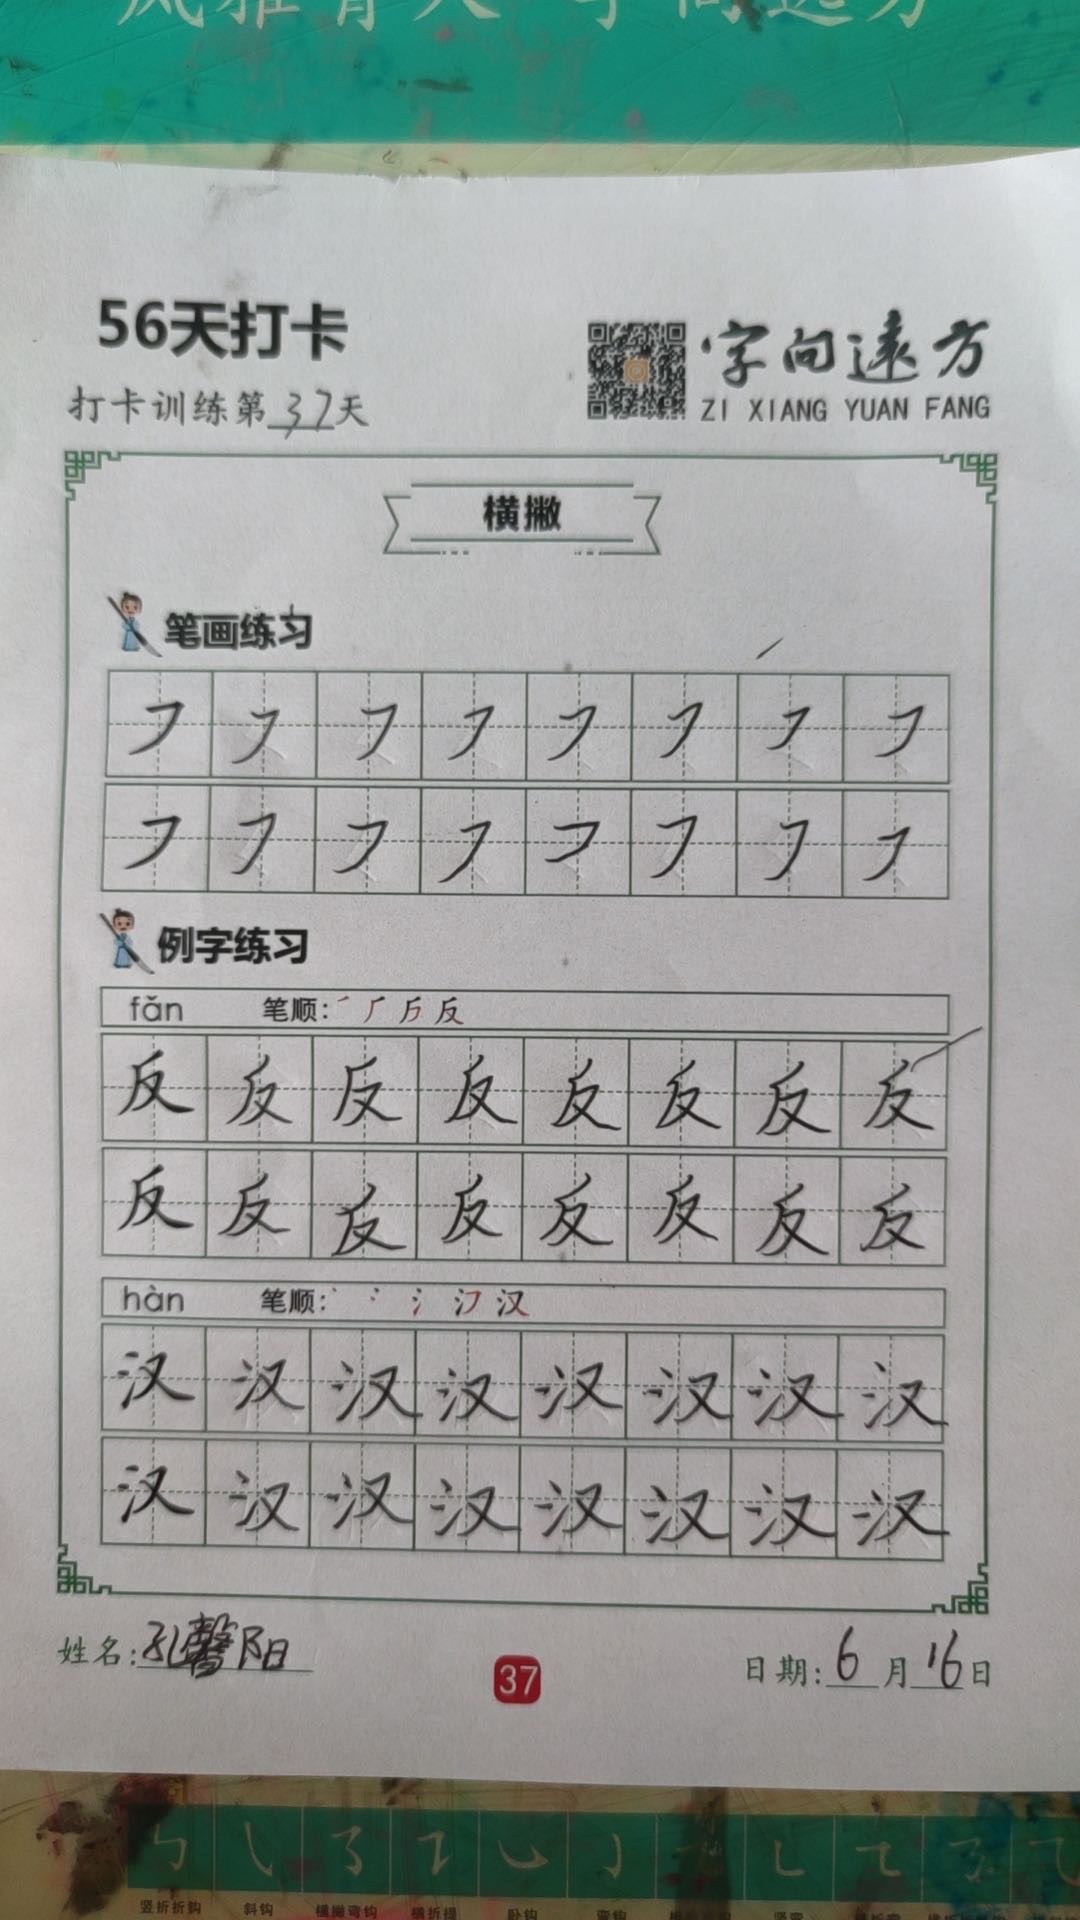 风雅育人 字向远方
56天打卡
字向遠方
打卡训练第37天
ZI XIANG YUAN FANG
横撇
笔画练习
㇇㇇㇇㇇㇇㇇㇇㇇
㇇㇇㇇㇇㇇㇇㇇㇇
例字练习
fǎn 笔顺: 反
反反反反反反反反
反反反反反反反反
hàn 笔顺: 氵 汉
汉汉汉汉汉汉汉汉
汉汉汉汉汉汉汉汉
姓名:孔馨阳
37
日期:6月16日
竖折折钩 斜钩 横撇弯钩 横折提 卧钩 弯钩